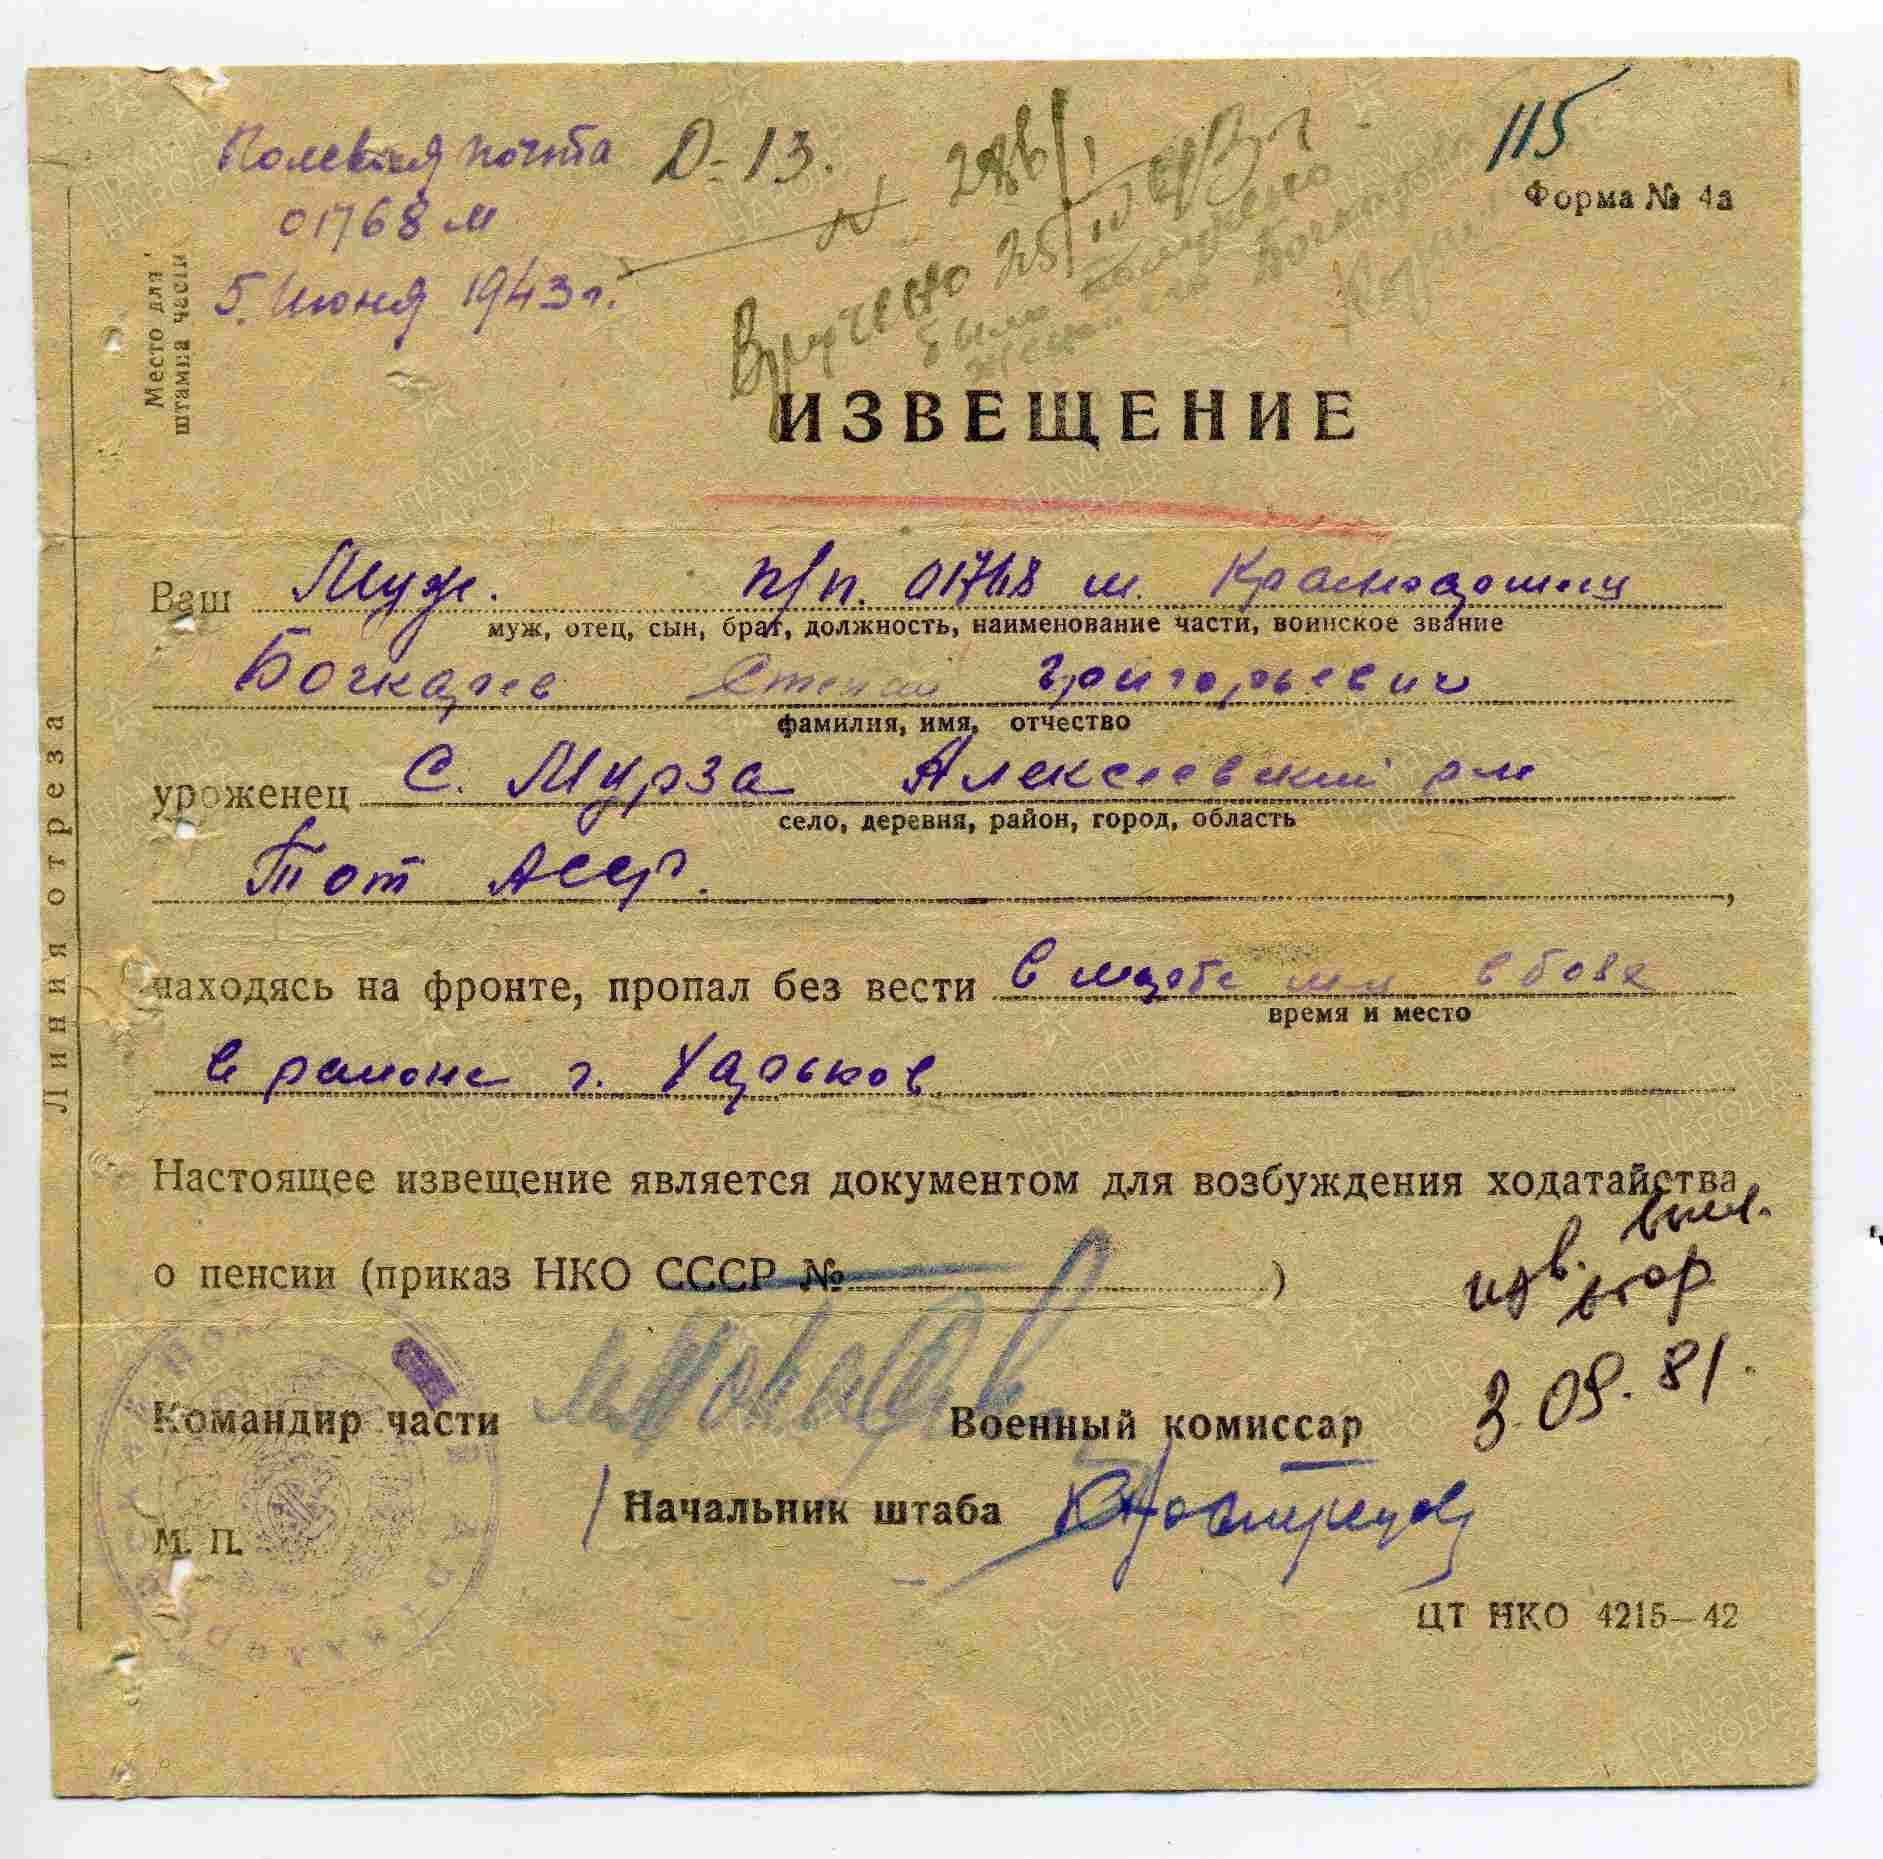 115
Полевая почта Д-13.
01768 м
5. Июня 1943 г.
Форма № 4а
Место для
штампа части
Вручено 25
было
ИЗВЕЩЕНИЕ
Ваш Муж. п/п. 01768 м. Красноармеец
муж, отец, сын, брат, должность, наименование части, воинское звание
Бочкарев Степан Григорьевич
фамилия, имя, отчество
уроженец С. Мурза Алексеевский р-н
село, деревня, район, город, область
Тот АССР.
находясь на фронте, пропал без вести в марте м-ц в боях
время и место
в районе г. Харьков
Линия отреза
Настоящее извещение является документом для возбуждения ходатайства
о пенсии (приказ НКО СССР № )
изв. выл.
втор
3.09.81.
Командир части Военный комиссар
Начальник штаба
М. П.
ЦТ НКО 4215—42
ПАМЯТЬ НАРОДА